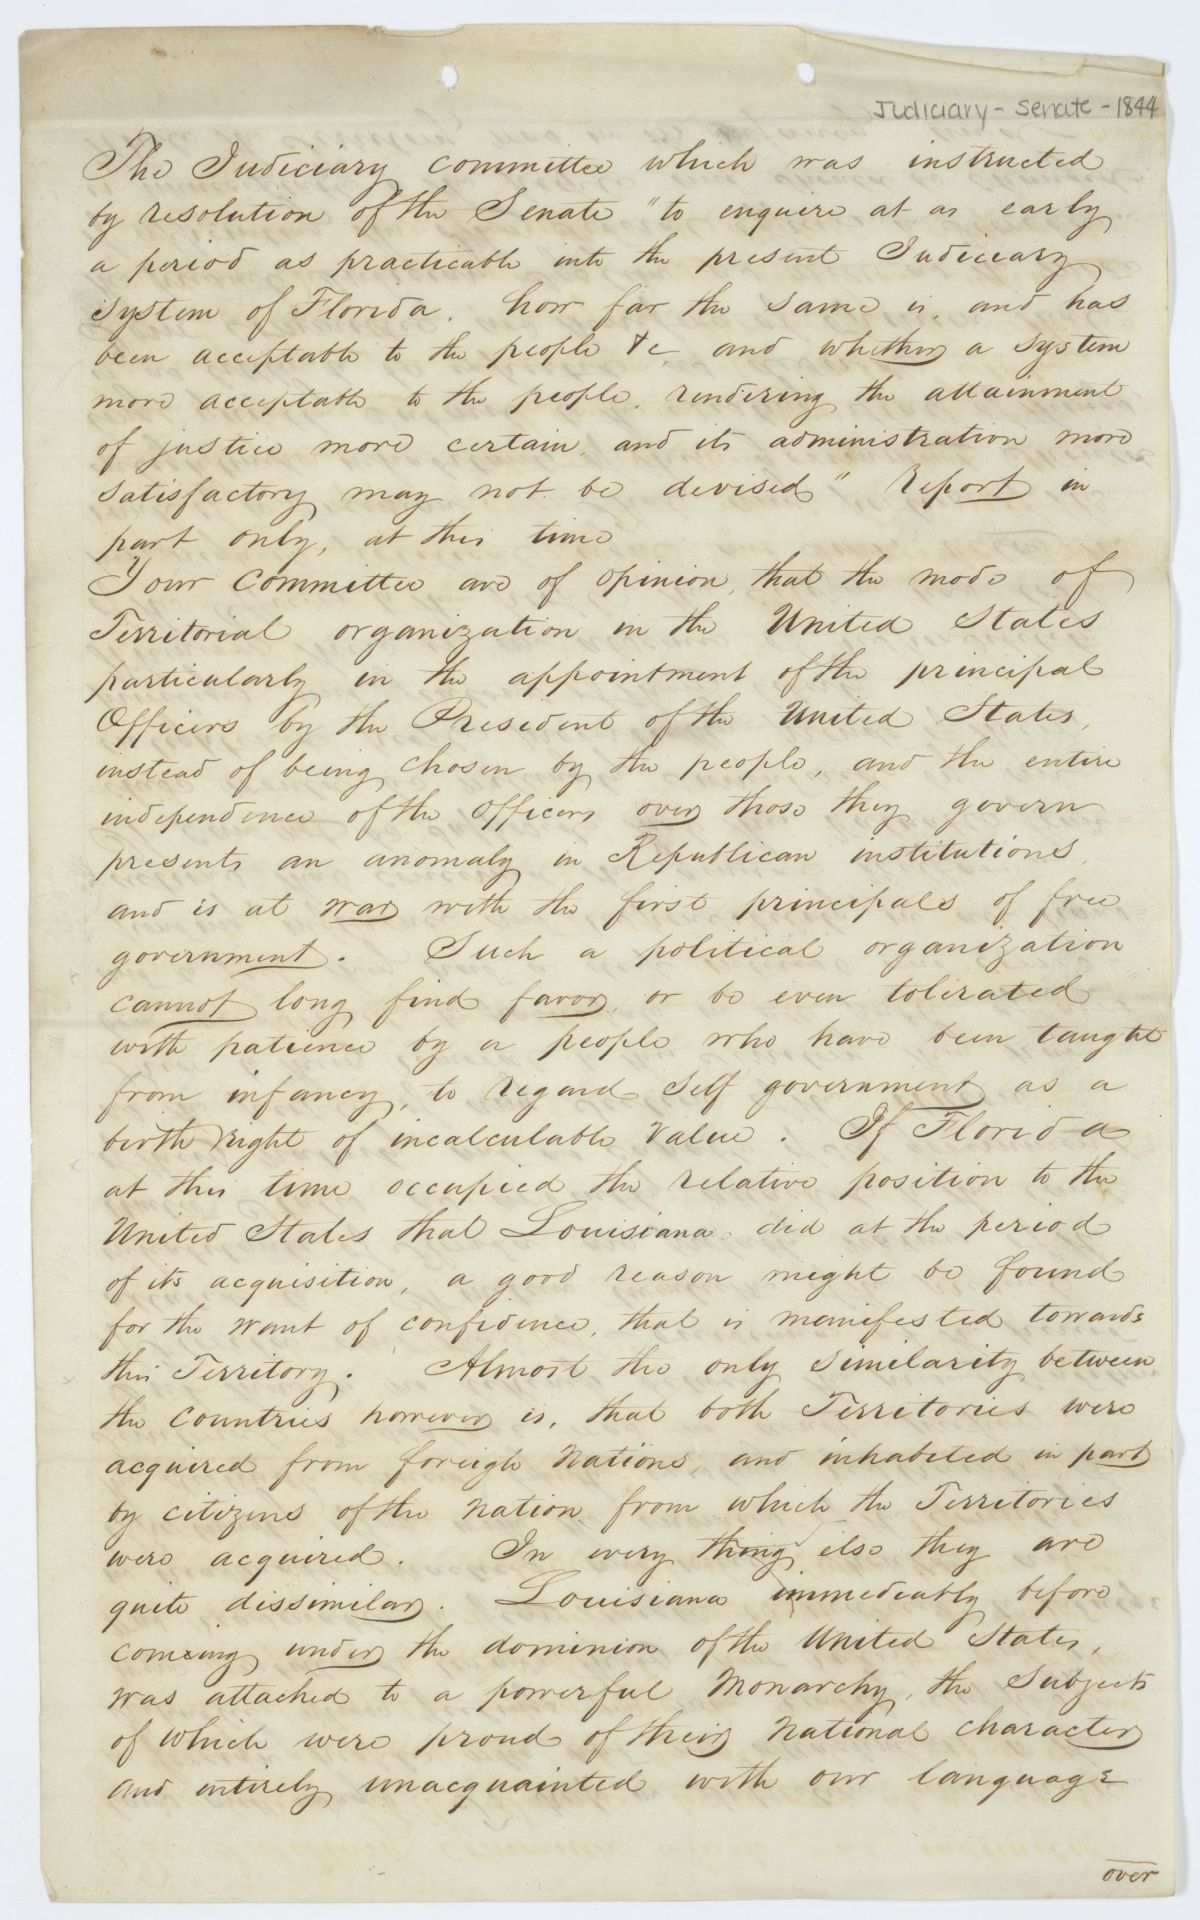 Judiciary - Senate - 1844
The Judiciary committee which was instructed
by resolution of the Senate "to enquire at as early
a period as practicable into the present Judiciary
system of Florida. how far the same is, and has
been acceptable to the people &c and whether a system
more acceptable to the people, rendering the attainment
of justice more certain, and its administration more
satisfactory may not be devised" Report in
part only, at this time
Your Committee are of opinion, that the mode of
Territorial organization in the United States
particularly in the appointment of the principal
Officers by the President of the United States,
instead of being chosen by the people, and the entire
independence of the officers over those they govern
presents an anomaly in Republican institutions,
and is at war with the first principals of free
government. Such a political organization
cannot long find favor, or be even tolerated
with patience by a people who have been taught
from infancy, to regard self government as a
birth right of incalculable value. If Florida
at this time occupied the relative position to the
United States that Louisiana did at the period
of its acquisition, a good reason might be found
for the want of confidence, that is manifested towards
this Territory. Almost the only similarity between
the countries however is, that both Territories were
acquired from foreign nations, and inhabited in part
by citizens of the nation from which the Territories
were acquired. In every thing else they are
quite dissimilar. Louisiana immedeatly before
comeing under the dominion of the United States,
was attached to a powerful Monarchy, the Subjects
of which were proud of their National character
and entirely unacquainted with our language
over